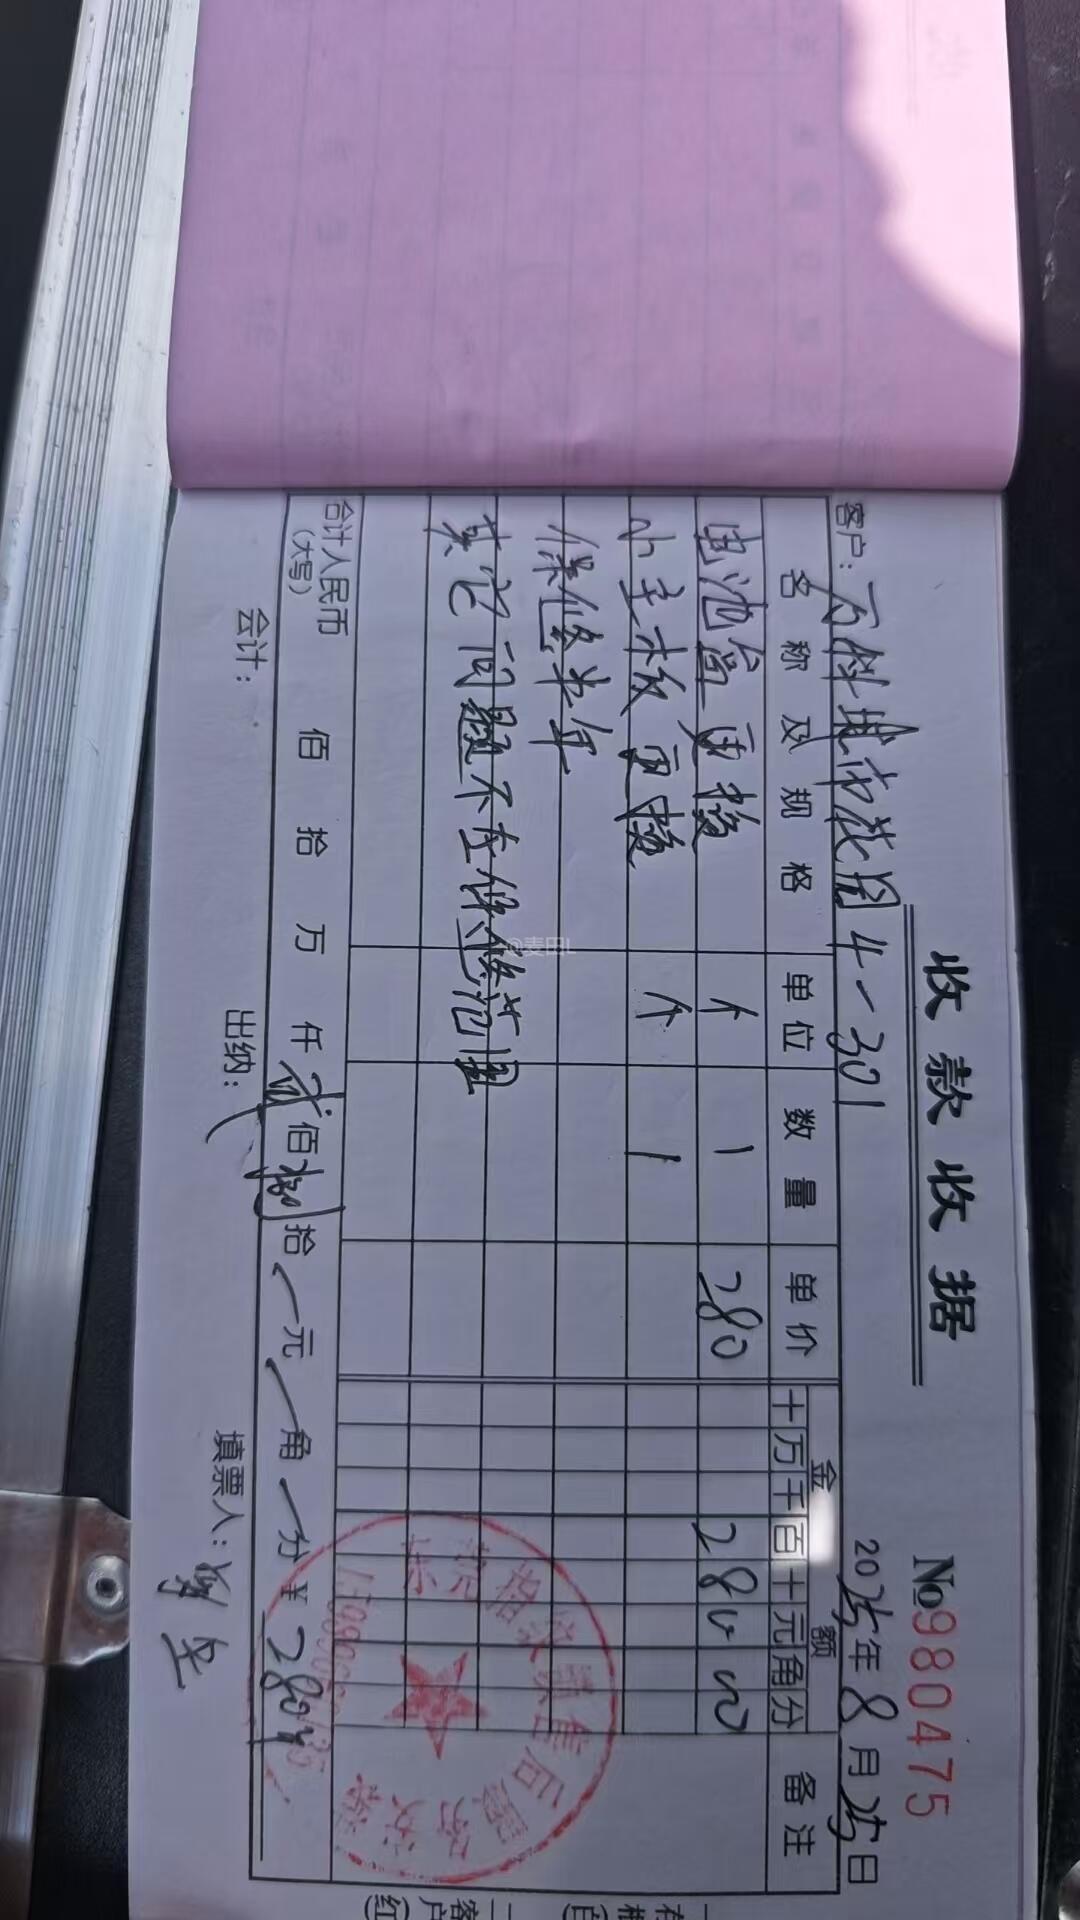 收款收据
№980475
客户：万科城市花园4-301
2025年8月25日
名称及规格 单位 数量 单价 金额 备注
十万千百十元角分
电池盒更换 个 1 280 28000
小主板更换 个 1
保修半年
其它问题不在保修范围
合计人民币(大写) 佰 拾 万 仟 贰佰捌拾 元 角 分 ¥280元
会计： 出纳： 填票人：
@麦田L